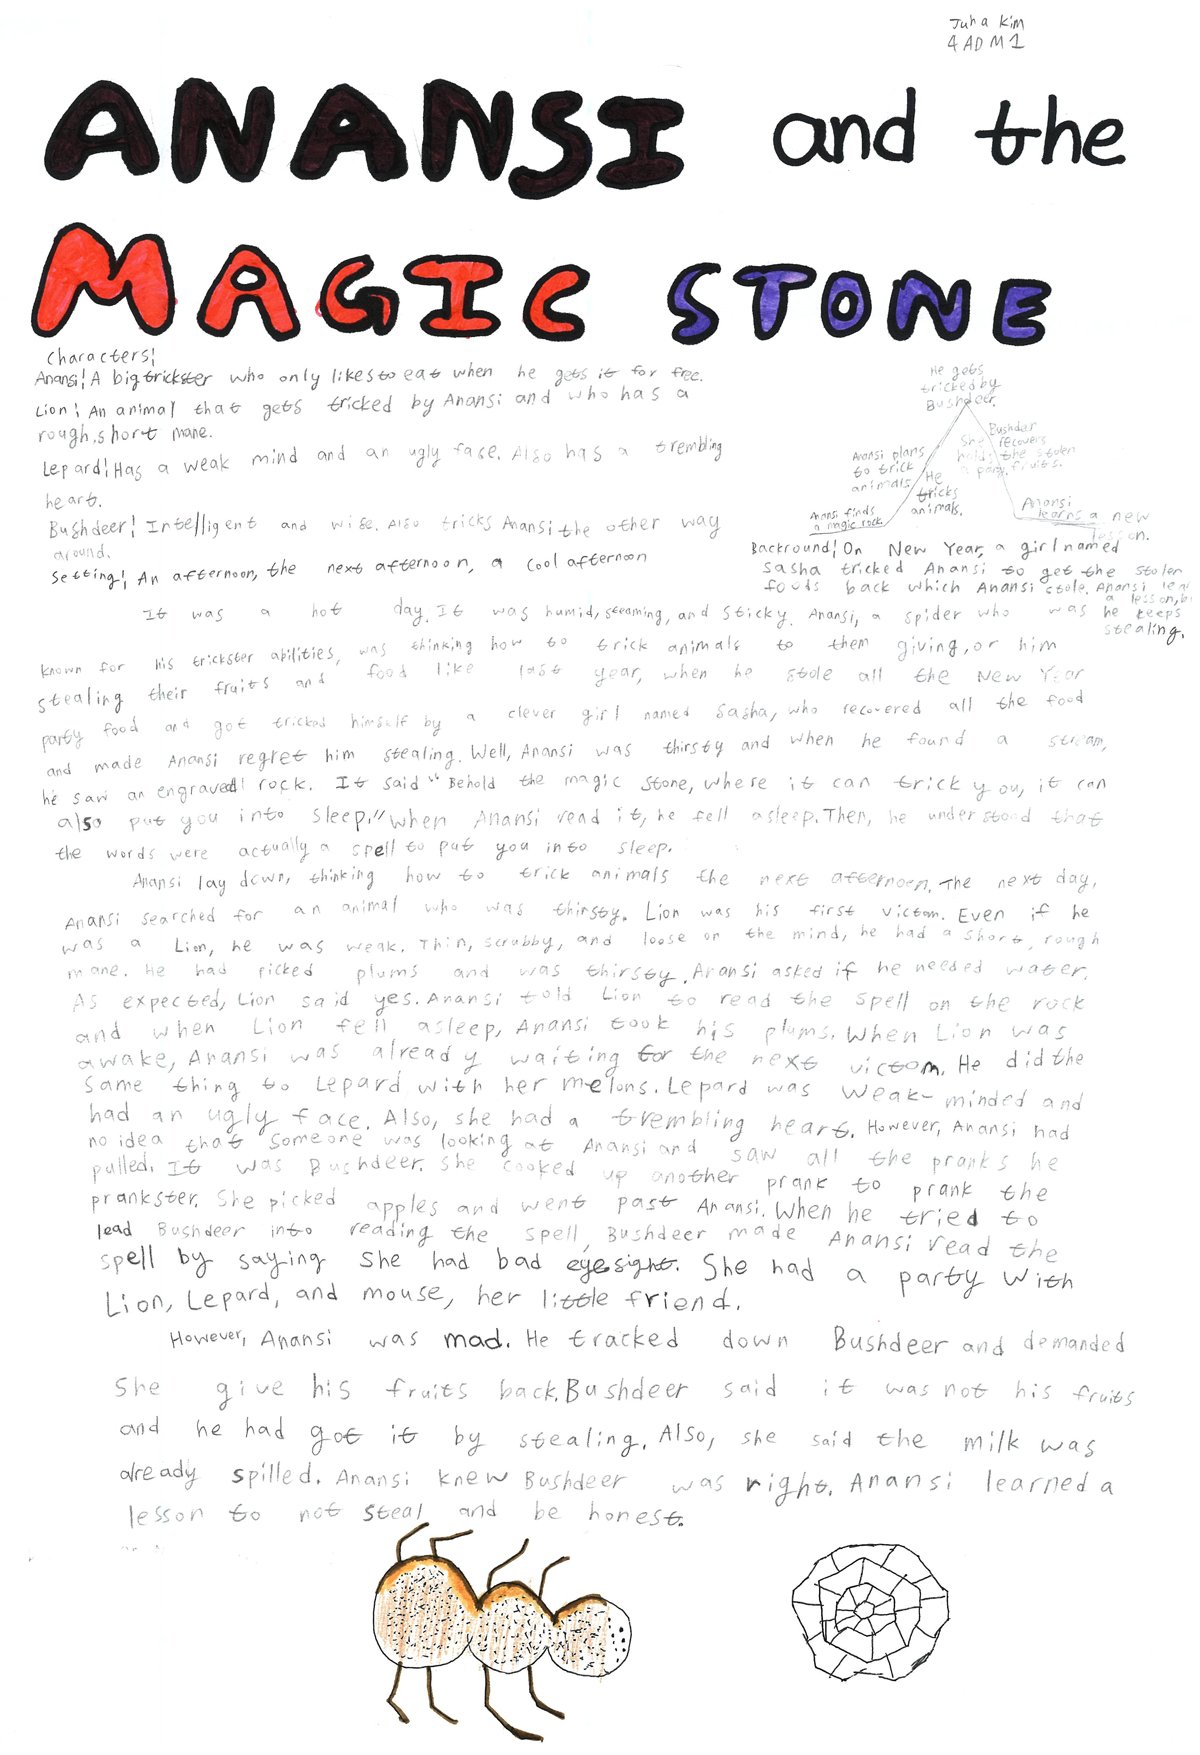 Juha Kim
4ADM1
ANANSI and the
MAGIC STONE
Characters:
Anansi: A big trickster who only likes to eat when he gets it for free.
Lion: An animal that gets tricked by Anansi and who has a
rough, short mane.
Lepard: Has a weak mind and an ugly fase. Also has a trembling
heart.
Bushdeer: Intelligent and wise. Also tricks Anansi the other way
around.
Setting: An afternoon, the next afternoon, a cool afternoon
He gets
tricked by
Bushdeer.
Anansi plans
to trick
animals
He
tricks
animals.
Anansi finds
a magic rock
Bushdeer
recovers
the stolen
fruits.
She
holds
a party.
Anansi
learns a new
lesson.
Backround: On New Year, a girl named
Sasha tricked Anansi to get the stolen
foods back which Anansi stole. Anansi
a lesson,
he keeps
stealing.
It was a hot day. It was humid, steaming, and sticky. Anansi, a spider who was
known for his trickster abilities, was thinking how to trick animals to them giving, or him
stealing their fruits and food like last year, when he stole all the New Year
party food and got tricked himself by a clever girl named Sasha, who recovered all the food
and made Anansi regret him stealing. Well, Anansi was thirsty and when he found a stream,
he saw an engraved rock. It said "Behold the magic stone, where it can trick you, it can
also put you into sleep." When Anansi read it, he fell asleep. Then, he understood that
the words were actually a spell to put you into sleep.
Anansi lay down, thinking how to trick animals the next afternoon. The next day,
Anansi searched for an animal who was thirsty. Lion was his first victom. Even if he
was a Lion, he was weak. Thin, scrubby, and loose on the mind, he had a short, rough
mane. He had picked plums and was thirsty. Anansi asked if he needed water.
As expected, Lion said yes. Anansi told Lion to read the spell on the rock
and when Lion fell asleep, Anansi took his plums. When Lion was
awake, Anansi was already waiting for the next victom. He did the
same thing to Lepard with her melons. Lepard was weak-minded and
had an ugly face. Also, she had a trembling heart. However, Anansi had
no idea that someone was looking at Anansi and saw all the pranks he
pulled. It was Bushdeer. She cooked up another prank to prank the
prankster. She picked apples and went past Anansi. When he tried to
lead Bushdeer into reading the spell, Bushdeer made Anansi read the
spell by saying she had bad eyesight. She had a party with
Lion, Lepard, and mouse, her little friend.
However, Anansi was mad. He tracked down Bushdeer and demanded
she give his fruits back. Bushdeer said it was not his fruits
and he had got it by stealing. Also, she said the milk was
already spilled. Anansi knew Bushdeer was right. Anansi learned a
lesson to not steal and be honest.